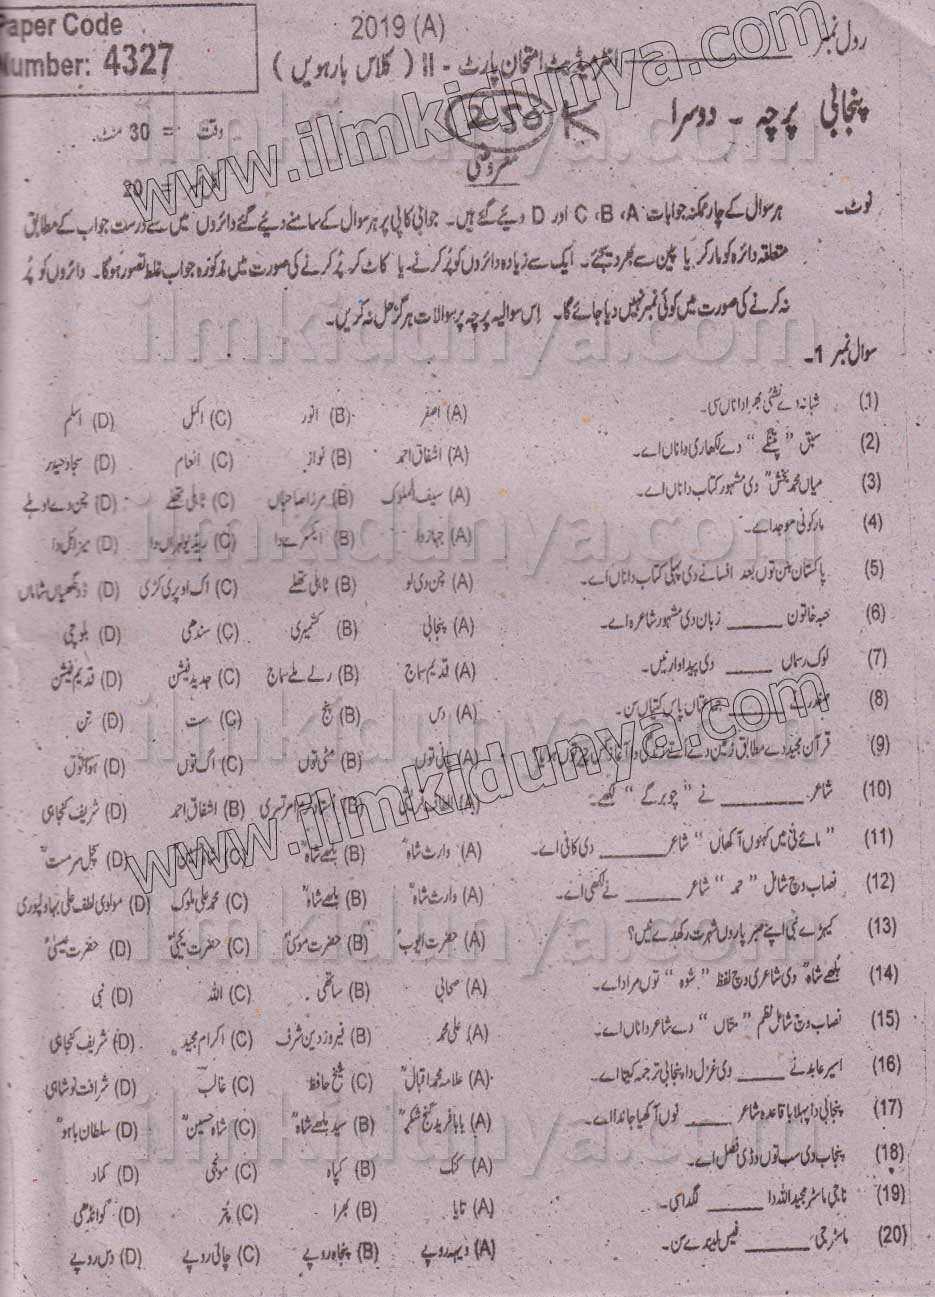 Paper Code
Number: 4327
2019 (A)
رول نمبر
انٹرمیڈیٹ امتحان پارٹ - II ( کلاس بارہویں )
پنجابی پرچہ - دوسرا
وقت = 30 منٹ
معروضی
= 20
نوٹ۔ ہر سوال کے چار ممکنہ جوابات A، B، C اور D دیئے گئے ہیں۔ جوابی کاپی پر ہر سوال کے سامنے دیئے گئے دائروں میں سے درست جواب کے مطابق
متعلقہ دائرہ کو مارکر یا پین سے بھر دیجئے۔ ایک سے زیادہ دائروں کو پُر کرنے یا کاٹ کر پُر کرنے کی صورت میں مذکورہ جواب غلط تصور ہوگا۔ دائروں کو پُر
نہ کرنے کی صورت میں کوئی نمبر نہیں دیا جائے گا۔ اس سوالیہ پرچہ پر سوالات ہرگز حل نہ کریں۔
سوال نمبر 1۔
(1) شہانہ دے نشئی بھرا دا ناں سی۔ (A) اصغر (B) انور (C) اکمل (D) اسلم
(2) سبق " پتنگے " دے لکھاری دا ناں اے۔ (A) اشفاق احمد (B) نواز (C) انعام (D) سجاد حیدر
(3) میاں محمد بخشؒ دی مشہور کتاب دا ناں اے۔ (A) سیف الملوک (B) مرزا صاحباں (C) ٹاہلی تھلے (D) چن دے اوہلے
(4) مارکونی موجد اے۔ (A) جہاز دا (B) ایکسرے دا (C) ریڈیو لہراں دا (D) میزائل دا
(5) پاکستان بنن توں بعد افسانے دی پہلی کتاب دا ناں اے۔ (A) چن دی لو (B) ٹاہلی تھلے (C) اک اوپری کڑی (D) ڈونگھیاں شاماں
(6) حبہ خاتون ____ زبان دی مشہور شاعرہ اے۔ (A) پنجابی (B) کشمیری (C) سندھی (D) بلوچی
(7) لوک رسماں ____ دی پیداوار نیں۔ (A) قدیم سماج (B) رلے ملے سماج (C) جدید فیشن (D) قدیم فیشن
(8) ____ جماعتاں پاس کیتیاں سن۔ (A) دس (B) پنج (C) ست (D) تن
(9) قرآن مجید دے مطابق زمین دے اُتے زندگی دا آغاز کس چیز توں ہویا (A) پانی توں (B) مٹی توں (C) اگ توں (D) ہوا توں
(10) شاعر ____ نے " چوبرگے " لکھے۔ (A) (B) امرتسری (B) اشفاق احمد (D) شریف کنجاہی
(11) " مائے نی میں کہنوں آکھاں " شاعر ____ دی کافی اے۔ (A) وارث شاہؒ (B) بلھے شاہؒ (C) شاہ حسینؒ (D) سچل سرمستؒ
(12) نصاب وچ شامل " حمد " شاعر ____ نے لکھی اے۔ (A) وارث شاہؒ (B) بلھے شاہؒ (C) محمد علی ملوک (D) مولوی لطف علی بہاولپوری
(13) کیہڑے نبی اپنے صبر پاروں شہرت رکھدے نیں؟ (A) حضرت ایوبؑ (B) حضرت موسیٰؑ (C) حضرت یحییٰؑ (D) حضرت عیسیٰؑ
(14) بلھے شاہؒ دی شاعری وچ لفظ " شوہ " توں مراد اے۔ (A) صحابی (B) ساتھی (C) اللہ (D) نبی
(15) نصاب وچ شامل نظم " متاں " دے شاعر دا ناں اے۔ (A) علی محمد (B) فیروز دین شرف (C) اکرام مجید (D) شریف کنجاہی
(16) اسیر عابد نے ____ دی غزل دا پنجابی ترجمہ کیتا اے۔ (A) علامہ محمد اقبالؒ (C) شیخ حافظ (C) غالبؔ (D) شرافت نوشاہی
(17) پنجابی دا پہلا باقاعدہ شاعر ____ نوں آکھیا جاندا اے۔ (A) بابا فرید گنج شکرؒ (B) سید بلھے شاہؒ (C) شاہ حسینؒ (D) سلطان باہوؒ
(18) پنجاب دی سب توں وڈی فصل اے۔ (A) کنک (B) کپاہ (C) مونجی (D) کماد
(19) ناجی ماسٹر مجید اللہ دا ____ لگدا سی۔ (A) تایا (B) بھرا (C) پتر (D) گوانڈھی
(20) ماسٹر جی ____ فیس لیندے سن۔ (A) ویہہ روپے (B) پنجاہ روپے (C) چالی روپے (D) دس روپے
www.ilmkidunya.com
ilmkidunya.com